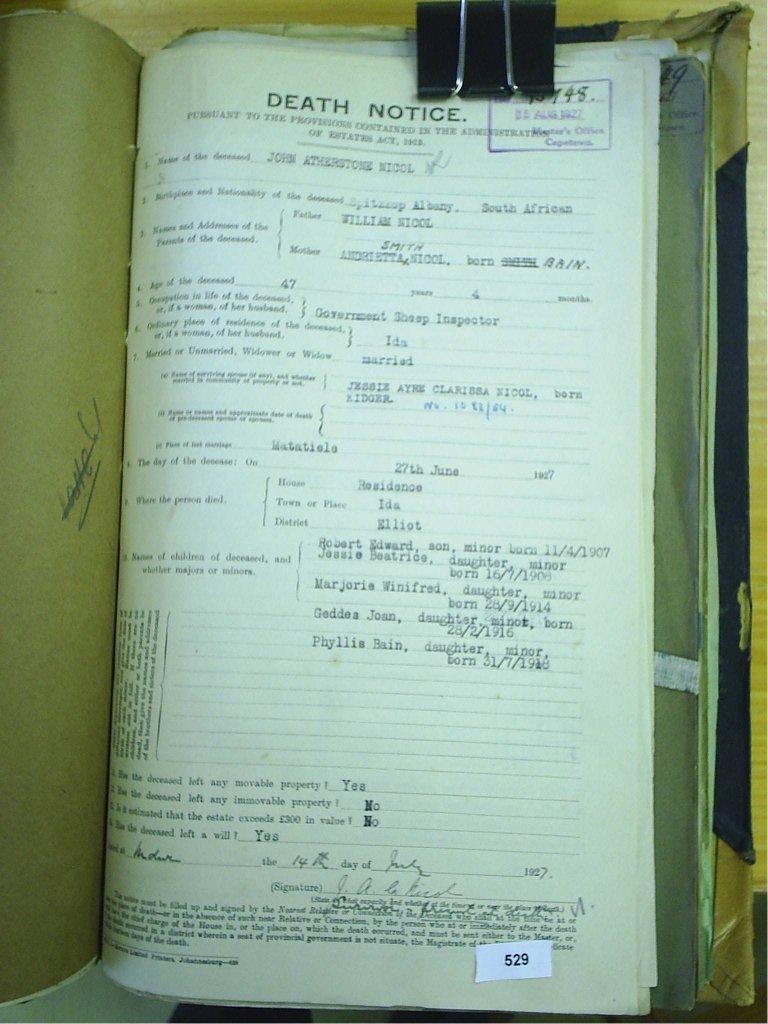 15748.
05 AUG 1927
Master's Office
Capetown.
DEATH NOTICE.
PURSUANT TO THE PROVISIONS CONTAINED IN THE ADMINISTRATION
OF ESTATES ACT, 1913.
1. Name of the deceased JOHN ATHERSTONE NICOL
2. Birthplace and Nationality of the deceased Spitzkop Albany. South African
3. Names and Addresses of the Parents of the deceased. Father WILLIAM NICOL
SMITH
Mother ANDRIETTA NICOL, born SMITH BAIN.
4. Age of the deceased 47 years 4 months.
5. Occupation in life of the deceased, or, if a woman, of her husband. Government Sheep Inspector
6. Ordinary place of residence of the deceased, or, if a woman, of her husband. Ida
7. Married or Unmarried, Widower or Widow married
(a) Name of surviving spouse (if any), and whether married in community of property or not. JESSIE AYRE CLARISSA NICOL, born
KIDGER.
(b) Name or names and approximate date of death of pre-deceased spouse or spouses.
(c) Place of last marriage Matatiele
8. The day of the decease: On 27th June 1927
9. Where the person died. House Residence
Town or Place Ida
District Elliot
10. Names of children of deceased, and whether majors or minors.
Robert Edward, son, minor born 11/4/1907
Jessie Beatrice, daughter, minor
born 16/7/1908
Marjorie Winifred, daughter, minor
born 28/9/1914
Geddes Joan, daughter, minor, born
28/2/1916
Phyllis Bain, daughter, minor,
born 31/7/1918
11. Has the deceased left any movable property? Yes
12. Has the deceased left any immovable property? No
13. Is it estimated that the estate exceeds £300 in value? No
14. Has the deceased left a will? Yes
the 14th day of July 1927.
(Signature) J. A. C. Nicol
This notice must be filled up and signed by the Nearest Relative or Connection of the deceased who shall at the time be at or
place of death—or in the absence of such near Relative or Connection, by the person who at or immediately after the death
the chief charge of the House in, or the place on, which the death occurred, and must be sent either to the Master, or,
occurred in a district wherein a seat of provincial government is not situate, the Magistrate of
days of the death.
Limited Printers, Johannesburg
529